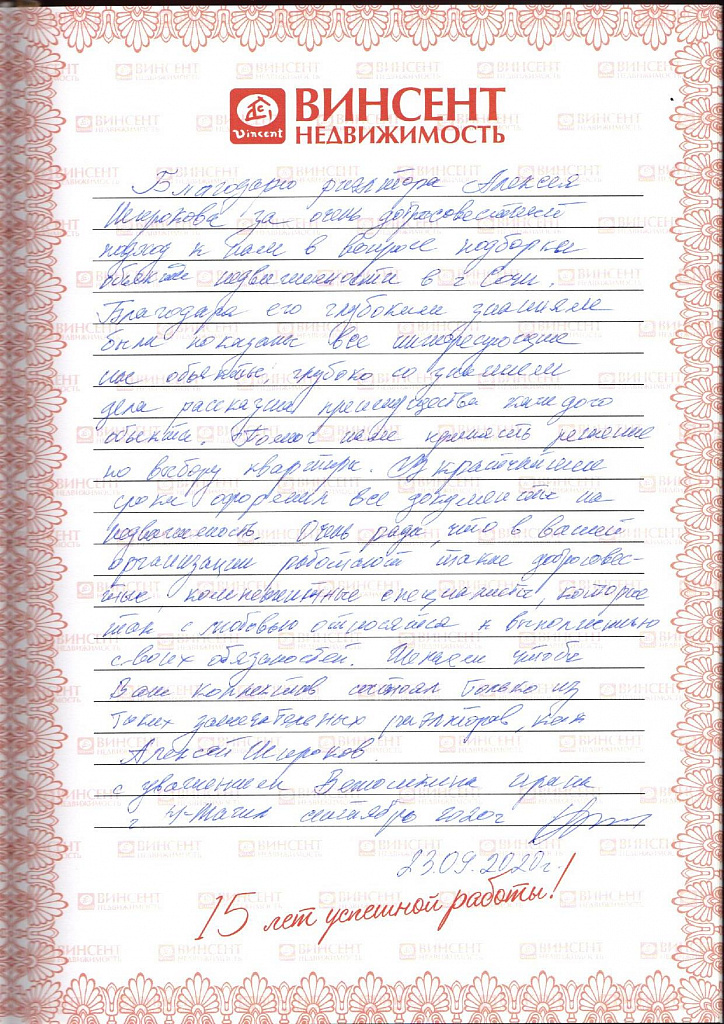 Vincent
ВИНСЕНТ
НЕДВИЖИМОСТЬ
Благодарю риэлтора Алексея
Широкова за очень добросовестный
подход к нам в вопросе подборки
объектов недвижимости в г Сочи.
Благодаря его глубоким знаниям
были показаны все интересующие
нас объекты, глубоко со знанием
дела рассказал преимущества каждого
объекта. Помог нам принять решение
по выбору квартиры. В кратчайшие
сроки оформил все документы на
недвижимость. Очень рада, что в вашей
организации работают такие добросовес-
тные, компетентные специалисты, которые
так с любовью относятся к выполнению
своих обязаностей. Желаем чтобы
Ваш коллектив состоял только из
таких замечательных риэлторов, как
Алексей Широков.
с уважением Ветошкина Ирина
г Н-Тагил сентябрь 2020г
23.09.2020г.
15 лет успешной работы!